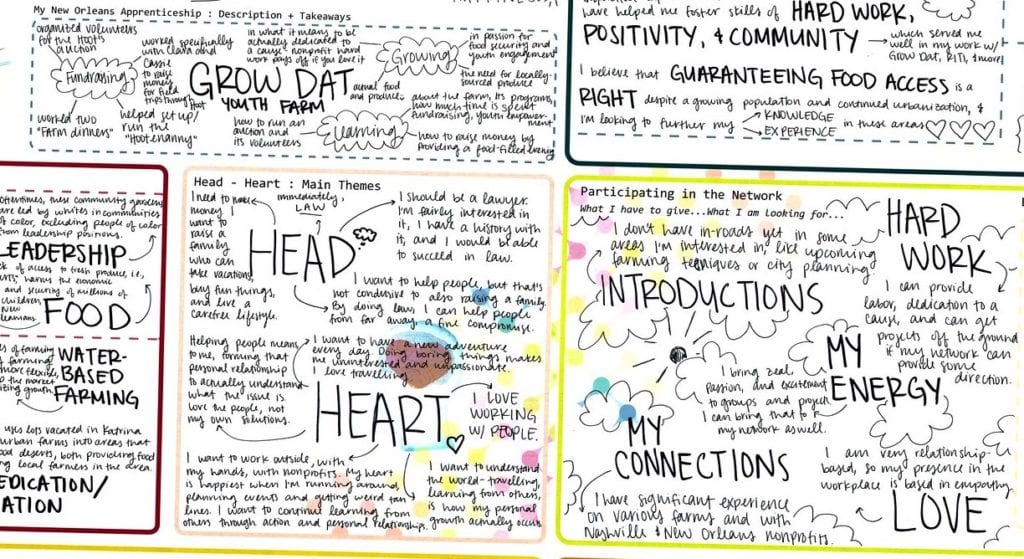 My New Orleans Apprenticeship : Description + Takeaways
organized volunteers
for the Hoot's
auction
Fundraising
worked two
"Farm dinners"
worked specifically
with Clara and
Cassie
to raise
money
for field
trips through
Hoot
helped set up/
run the
"Hootenanny"
in what it means to be
actually dedicated to
a cause - nonprofit hard
work pays off if you love it
GROW DAT
YOUTH FARM
how to run an
auction and
its volunteers
Growing
actual food
and produce
Learning
in passion for
food security and
youth engagement
the need for locally-
sourced produce
about the farm, its programs,
how much time is spent
fundraising, youth empower-
ment
how to raise money by
providing a food-filled evening
have helped me foster skills of HARD WORK,
POSITIVITY, & COMMUNITY → which served me
well in my work w/
Grow Dat, RITI, & more!
I believe that GUARANTEEING FOOD ACCESS is a
RIGHT despite a growing population and continued urbanization, &
I'm looking to further my KNOWLEDGE
EXPERIENCE in these areas ♡♡♡
oftentimes, these community gardens
are led by whites in communities
of color, excluding people of color
from leadership positions.
LEADERSHIP
of access to fresh produce, i.e.,
harms the economic
and security of millions of
children
New
Orleanians
FOOD
of farming
farming
more flexible,
the market
growth.
WATER-
BASED
FARMING
uses lots vacated in Katrina
urban farms into areas that
food deserts, both providing food
local farmers in the area.
Head - Heart : Main Themes
I need to make
money I
want to
raise a
family
who can
take vacations,
buy fun things,
and live a
carefree lifestyle.
immediately,
LAW
HEAD
I should be a lawyer.
I'm fairly interested in
it, I have a history with
it, and I would be able
to succeed in law.
I want to help people, but that's
not conducive to also raising a family.
By doing law, I can help people
from far away, a fine compromise.
Helping people means
to me, forming that
personal relationship
to actually understand
what the issue is.
Love the people, not
my own solutions.
I want to have a new adventure
every day. Doing boring things makes
me uninterested and unpassionate.
I love travelling.
HEART
I LOVE
WORKING
W/ PEOPLE.
I want to work outside, with
my hands, with nonprofits. My heart
is happiest when I'm running around,
planning events and getting weird tan
lines. I want to continue learning from
others through action and personal relationships.
I want to understand
the world - travelling,
learning from others,
is how my personal
growth actually occurs
Participating in the Network
What I have to give...What I am looking for...
I don't have in-roads yet in some
areas I'm interested in, like upcoming
farming techniques or city planning
INTRODUCTIONS
HARD
WORK
I can provide
labor, dedication to a
cause, and can get
projects off the ground
if my network can
provide some
direction.
I bring zeal,
passion, and excitement
to groups and projects
I can bring that to
my network as well.
MY
ENERGY
MY
CONNECTIONS
I have significant experience
on various farms and with
Nashville & New Orleans nonprofits.
I am very relationship-
based, so my presence in the
workplace is based in empathy.
LOVE